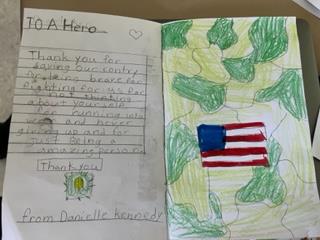 TO A Hero
Thank you for
saving our contry
for being brave for
fighting for us for
not thinking
about yourself
for running into
war and never
giving up and for
Just Being a
amazing person
Thank you
from Danielle Kennedy